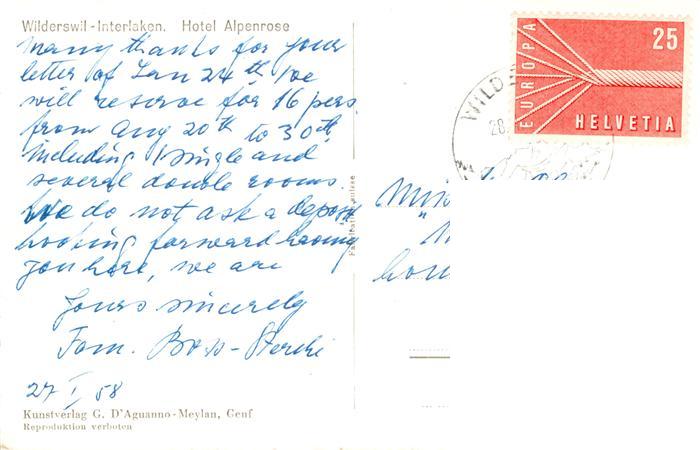 Wilderswil-Interlaken. Hotel Alpenrose
Many thanks for your
letter of Jan 24th. We
will reserve for 16 pers.
from Aug 20th to 30th
including 1 single and
several double rooms.
We do not ask a deposit
looking forward having
you here, we are
Yours sincerely
Fam. Boss-Sterchi
27 I 58
Kunstverlag G. D'Aguanno-Meylan, Genf
Reproduktion verboten
EUROPA
25
HELVETIA
WILD
28.